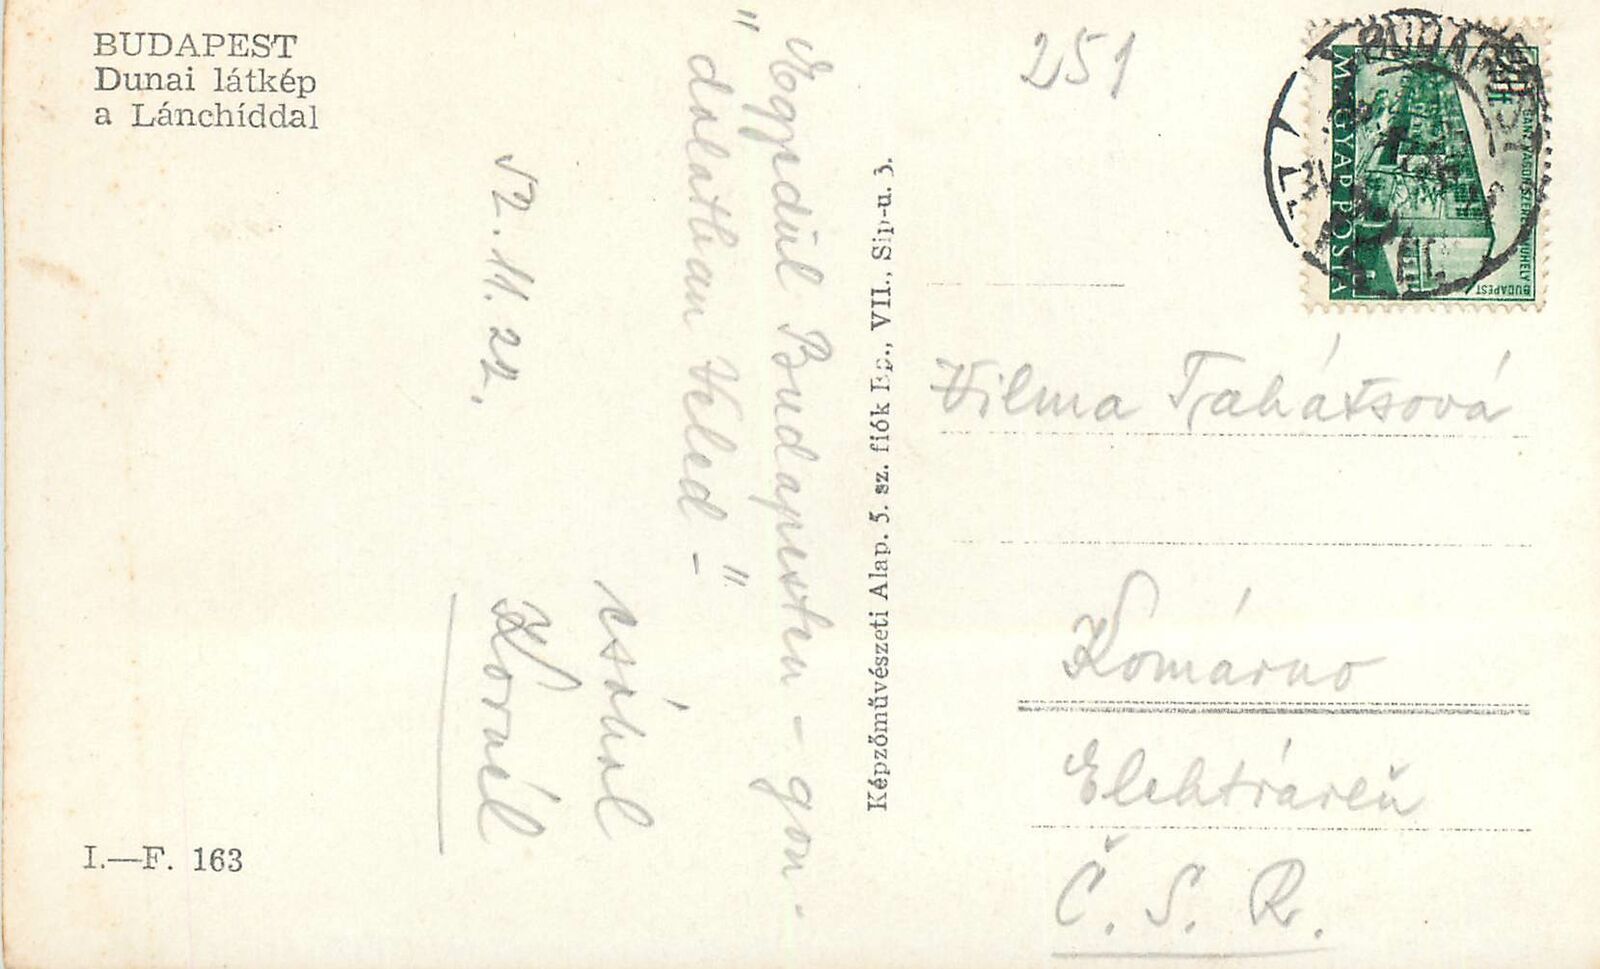 BUDAPEST
Dunai látkép
a Lánchíddal
52. 11. 22.
"Egyedül Budapesten – gon-
dolatban Veled –"
csókol
Kornél
I.—F. 163
Képzőművészeti Alap. 5. sz. fiók Bp., VII., Sip-u. 3.
251
BUDAPEST
MAGYAR POSTA
BUDAPEST
Vilma Takátsová
Komárno
Elektráreň
Č. S. R.